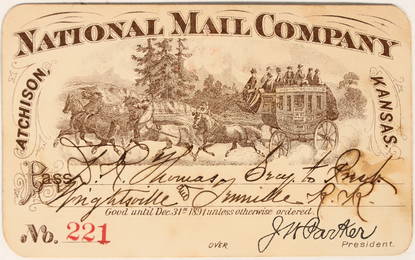 NATIONAL MAIL COMPANY
ATCHISON,
KANSAS.
Pass S. R. Thomas, Secy to Prest
Wrightsville and Tennille R. R.
Good until Dec. 31st 1891 unless otherwise ordered.
No. 221
OVER
J W Parker
President.